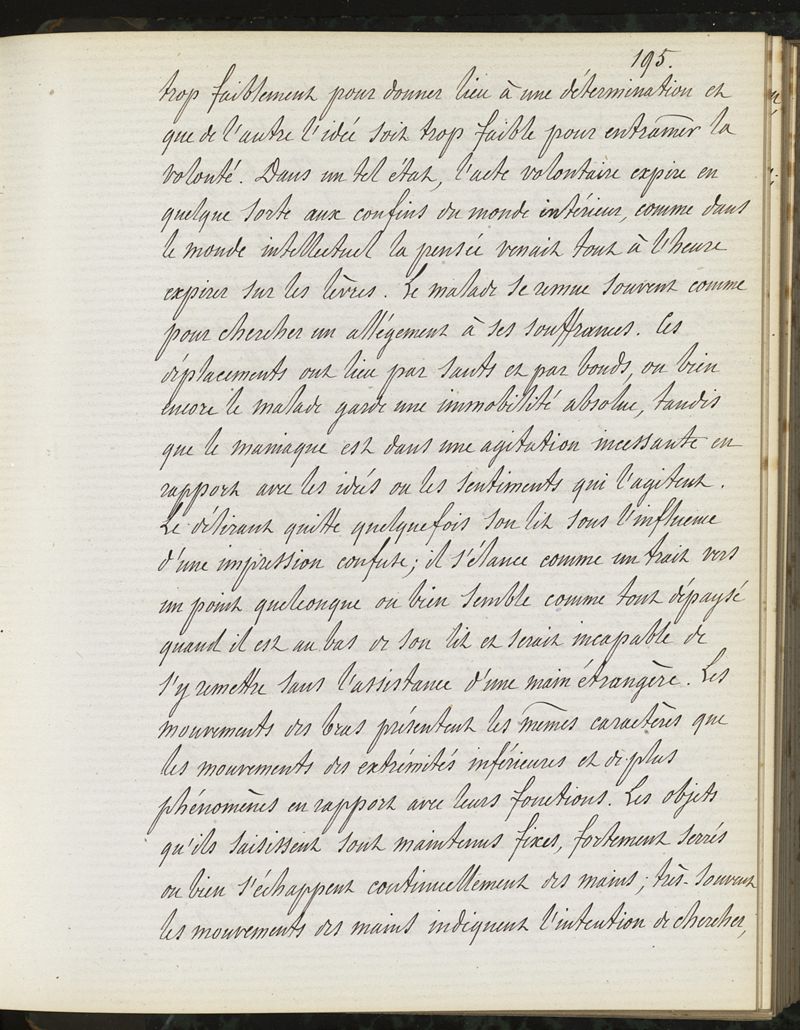 195.
trop faiblement pour donner lieu à une détermination et
que de l'autre l'idée soit trop faible pour entraîner la
volonté. Dans un tel état, l'acte volontaire expire en
quelque sorte aux confins du monde intérieur, comme dans
le monde intellectuel la pensée venait tout à l'heure
expirer sur les lèvres. Le malade se remue souvent comme
pour chercher un allégement à ses souffrances. Ces
déplacements ont lieu par sauts et par bonds, ou bien
encore le malade garde une immobilité absolue, tandis
que le maniaque est dans une agitation incessante en
rapport avec les idées ou les sentiments qui l'agitent.
Le délirant quitte quelquefois son lit sous l'influence
d'une impression confuse; il s'élance comme un trait vers
un point quelconque ou bien semble comme tout dépaysé
quand il est au bas de son lit et serait incapable de
s'y remettre sans l'assistance d'une main étrangère. Les
mouvements des bras présentent les mêmes caractères que
les mouvements des extrémités inférieures et de plus
phénomènes en rapport avec leurs fonctions. Les objets
qu'ils saisissent sont maintenus fixes, fortement serrés
ou bien s'échappent continuellement des mains; très-souvent
les mouvements des mains indiquent l'intention de chercher,